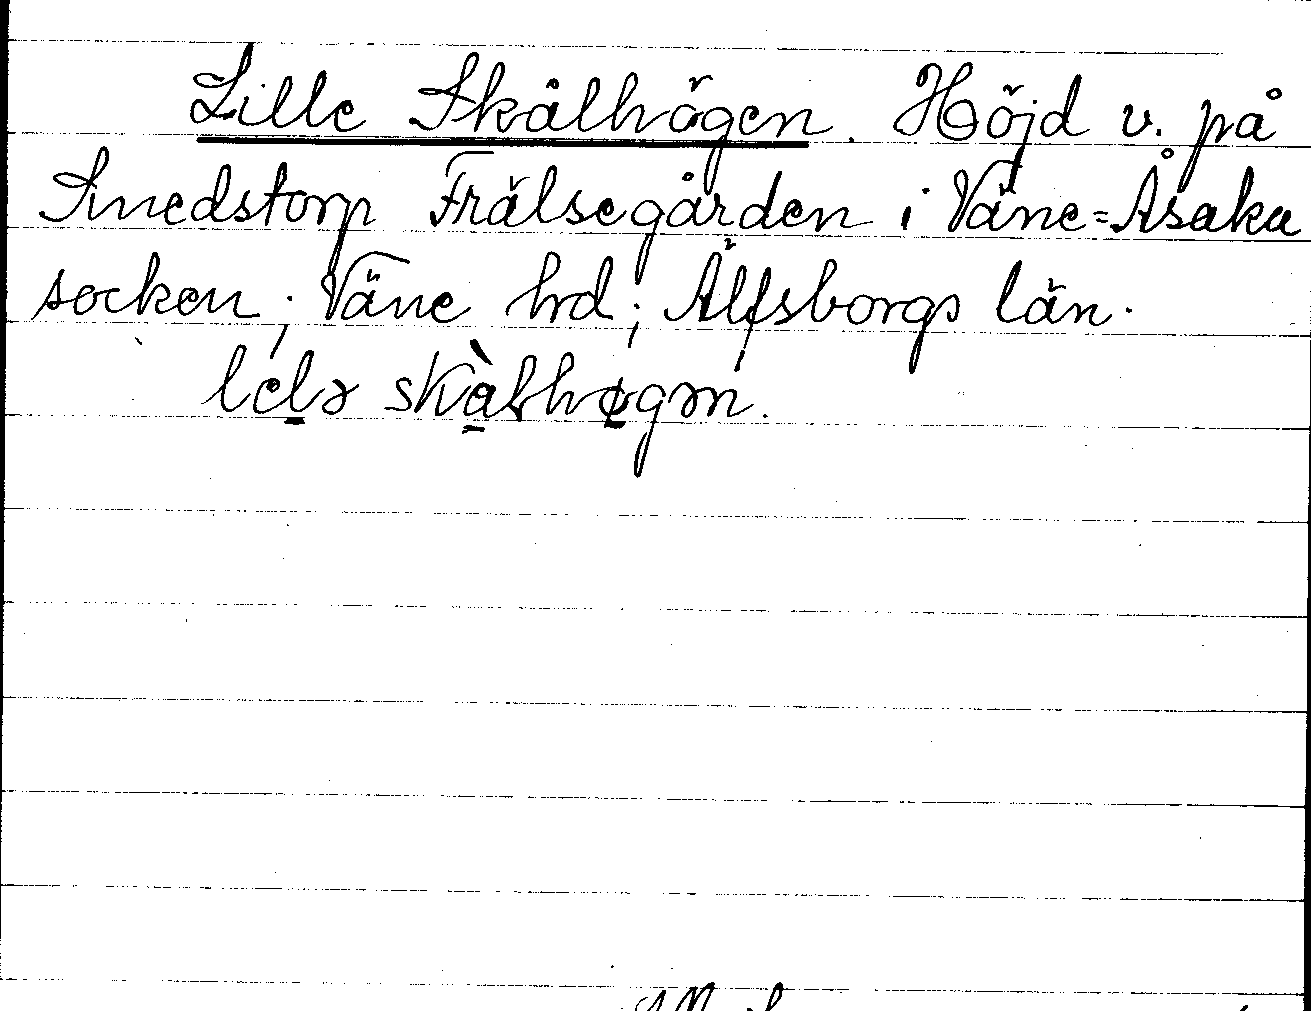 Lille Skålhögen. Höjd v. på
Smedstorp Frälsegården i Väne-Åsaka
socken; Väne hrd; Älfsborgs län.